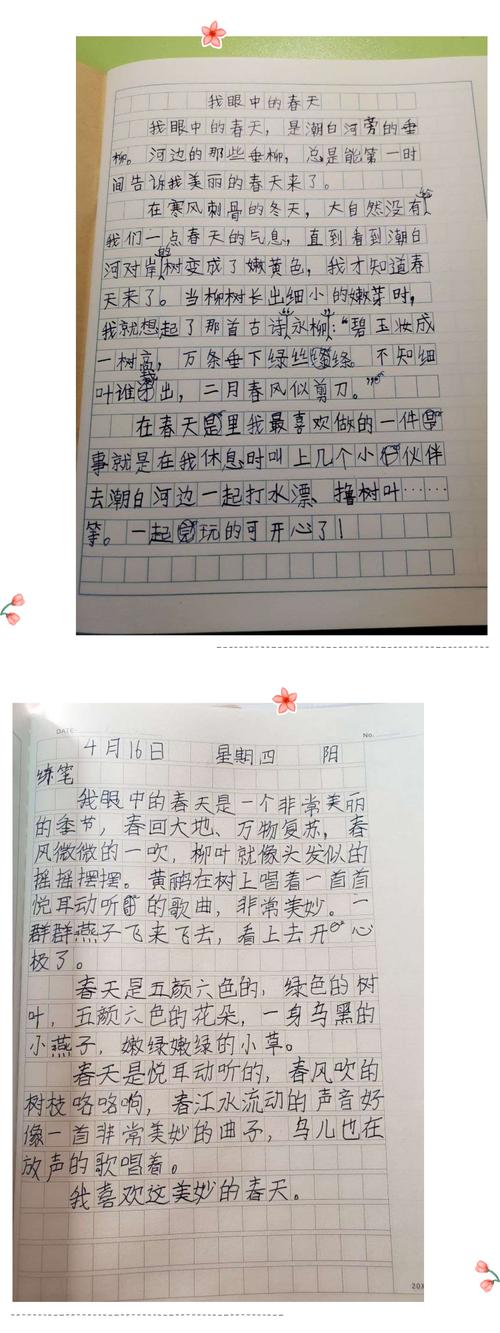 我眼中的春天
我眼中的春天，是潮白河旁的垂
柳。河边的那些垂柳，总是能第一时
间告诉我美丽的春天来了。
在寒风刺骨的冬天，大自然没有
我们一点春天的气息，直到看到潮白
河对岸树变成了嫩黄色，我才知道春
天来了。当柳树长出细小的嫩芽时，
我就想起了那首古诗永柳："碧玉妆成
一树高，万条垂下绿丝绦。不知细
叶谁出，二月春风似剪刀。"
在春天里我最喜欢做的一件
事就是在我休息时叫上几个小伙伴
去潮白河边一起打水漂、撸树叶……
等。一起玩的可开心了！
DATE
No.
4月16日 星期四 阳
练笔
我眼中的春天是一个非常美丽
的季节，春回大地、万物复苏，春
风微微的一吹，柳叶就像头发似的
摇摇摆摆。黄鹂在树上唱着一首首
悦耳动听的歌曲，非常美妙。一
群群燕子飞来飞去，看上去开心
极了。
春天是五颜六色的，绿色的树
叶，五颜六色的花朵，一身乌黑的
小燕子，嫩绿嫩绿的小草。
春天是悦耳动听的，春风吹的
树枝咯咯响，春江水流动的声音好
像一首非常美妙的曲子，鸟儿也在
放声的歌唱着。
我喜欢这美妙的春天。